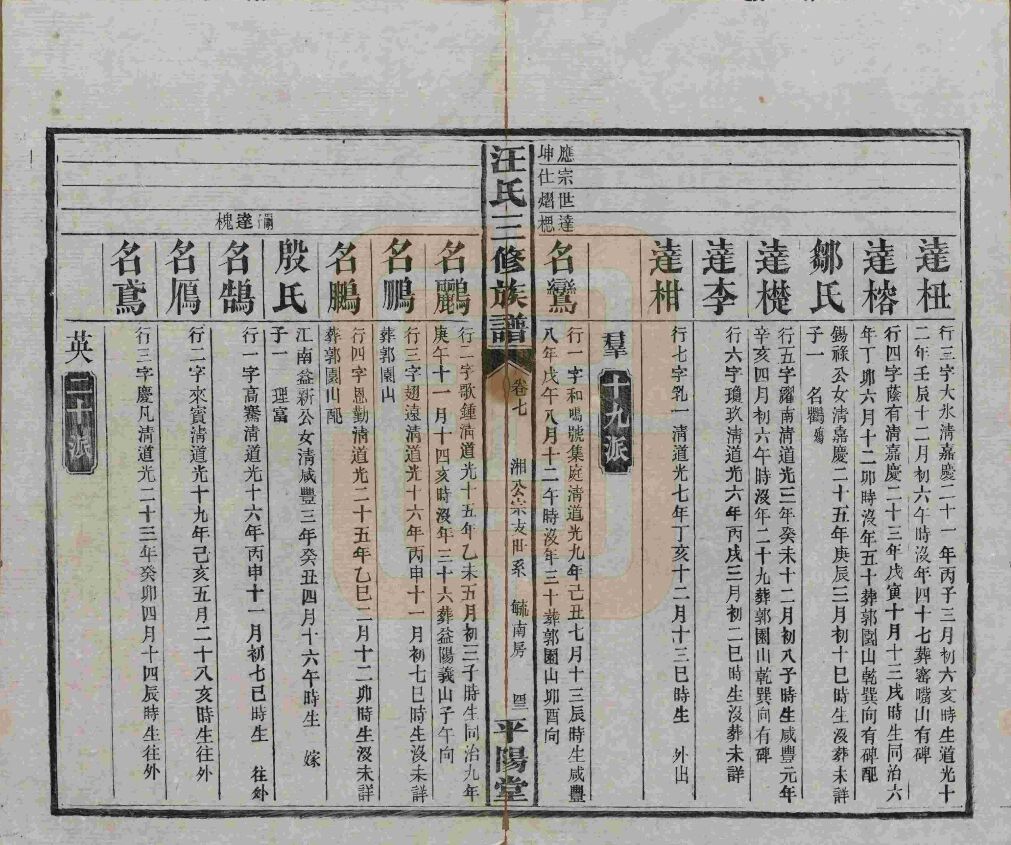 達杻
行三字大氷淸嘉慶二十一年丙子三月初六亥時生道光十
二年壬辰十二月初六午時沒年四十七葬審嘴山有碑
達榕
行四字蔭有淸嘉慶二十三年戊寅十月十三戌時生同治六
年丁卯六月十二卯時沒年五十葬郭園山乾巽向有碑配
鄒氏
錫祿公女淸嘉慶二十五年庚辰三月初十巳時生沒葬未詳
子一 名鸜殤
達櫵
行五字露南淸道光三年癸未十二月初八子時生咸豐元年
辛亥四月初六午時沒年二十九葬郭園山乾巽向有碑
達李
行六字瓊玖淸道光六年丙戌三月初二巳時生沒葬未詳
達柑
行七字乳一淸道光七年丁亥十二月十三巳時生 外出
羣
十九派
應宗世達
坤仕熠楒
名鸞
行一字和鳴號集庭淸道光九年己丑七月十三辰時生咸豐
八年戊午八月十二午時沒年三十葬郭園山卯酉向
汪氏三修族譜
卷七
湘公宗支世系
毓南房
平陽堂
名鸝
行二字歌鍾淸道光十五年乙未五月初三子時生同治九年
庚午十一月十四亥時沒年三十六葬益陽義山子午向
名鵬
行三字翅遠淸道光十六年丙申十一月初七巳時生沒未詳
葬郭園山
名鵬
行四字恩勤淸道光二十五年乙巳二月十二卯時生沒未詳
葬郭園山配
殷氏
江南益新公女淸咸豐三年癸丑四月十六午時生 嫁
子一 理富
嗣達槐
名鵠
行一字高騫淸道光十六年丙申十一月初七巳時生 往外
名鴈
行二字來賓淸道光十九年己亥五月二十八亥時生往外
名鳶
行三字慶凡淸道光二十三年癸卯四月十四辰時生往外
英
二十派